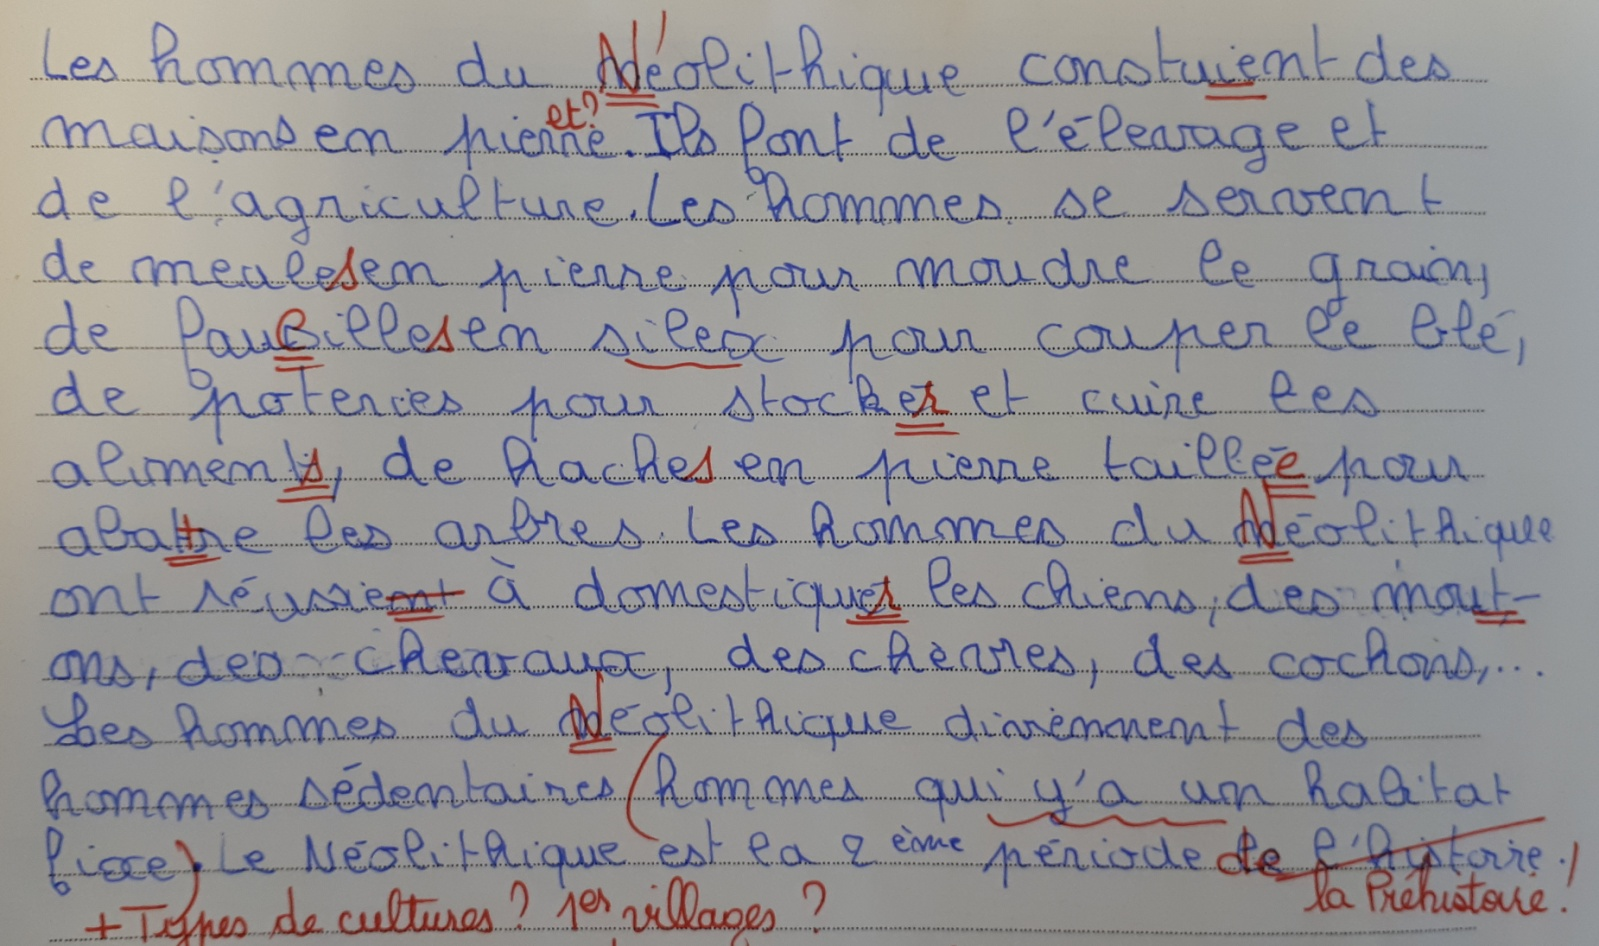 Les hommes du Néolithique constuient des
et?
maisons en pierre. Ils font de l'élevage et
de l'agriculture. Les hommes se servent
de meules en pierre pour moudre le grain,
de faucilles en silex pour couper le blé,
de poteries pour stocker et cuire les
aliments, de haches en pierre taillée pour
abattre les arbres. Les hommes du Néolithique
ont réussient à domestiquer les chiens, des mout-
ons, des chevaux, des chèvres, des cochons,...
Les hommes du Néolithique diviennent des
hommes sédentaires (hommes qui y'a un habitat
fixe). Le Néolithique est la 2 ème période de l'histoire.
la Préhistoire!
+ Types de cultures? 1ers villages?